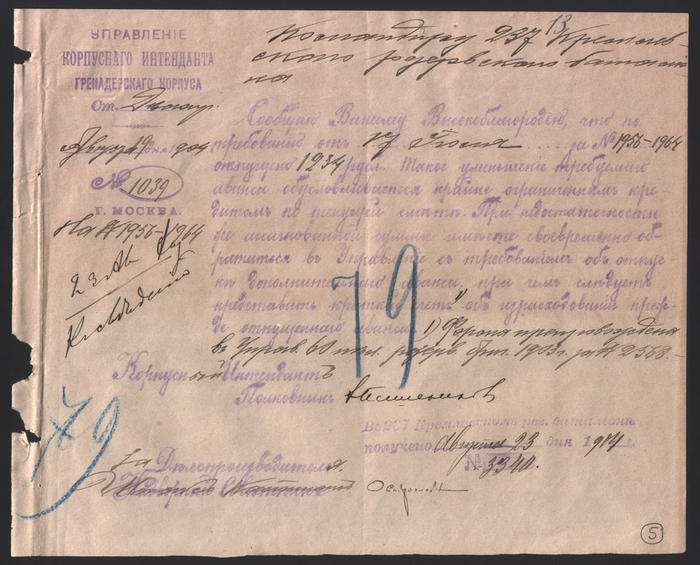 УПРАВЛЕНІЕ
КОРПУСНАГО ИНТЕНДАНТА
ГРЕНАДЕРСКАГО КОРПУСА
Ст.
Августа 19 дня 1904
№ 1039
Г. МОСКВА.
На № 1956-1964
Командиру 237 Кремлев-
скаго резервнаго баталіо-
на
13
Сообщаю Вашему Высокоблагородію, что по
требованію отъ 17 Іюля за № 1956-1964
отпущено 1234 руб. Такое уменьшеніе требуемаго
аванса обусловливается крайне ограниченнымъ кре-
дитомъ по текущей смѣтѣ. При недостаточности
же ассигнованной суммы имѣете своевременно об-
ратиться въ Управленіе съ требованіемъ объ отпус-
кѣ дополнительнаго аванса, при чемъ слѣдуетъ
представить краткій отчетъ 1) объ израсходованіи преж-
де отпущеннаго аванса. 1) Форма препровождена
въ Управ. 60 пѣх. резерв. бриг. 1903 г. за № 2568.-
79
79
Корпусный Интендантъ
Полковникъ
Въ 237 Кремлевскомъ рез. баталіонѣ
получено Августа 23 дня 1904 г.
№ 3340.
за Дѣлопроизводителя
5